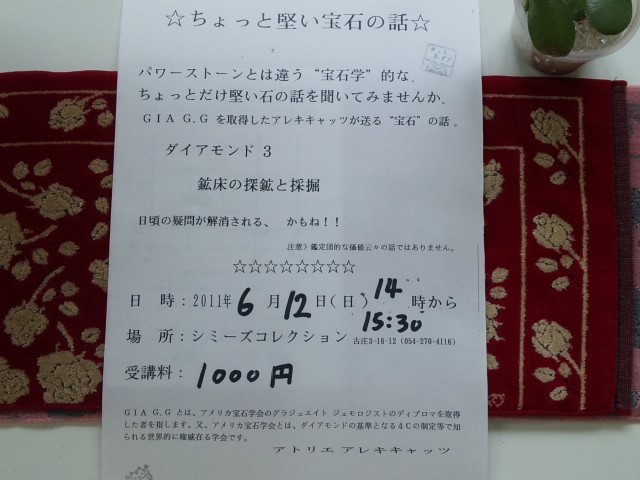 ☆ちょっと堅い宝石の話☆
パワーストーンとは違う“宝石学”的な、
ちょっとだけ堅い石の話を聞いてみませんか。
GIA G.G を取得したアレキキャッツが送る“宝石”の話。
ダイアモンド 3
鉱床の探鉱と採掘
日頃の疑問が解消される、 かもね！！
注意）鑑定団的な価値云々の話ではありません。
☆☆☆☆☆☆☆☆
日 時：2011年 6 月 12 日（日） 14 時から
15:30
場 所：シミーズコレクション 古庄3-16-12（054-270-4116）
受講料： 1000円
GIA G.G とは、アメリカ宝石学会のグラジュエイト ジェモロジストのディプロマを取得
した者を指します。又、アメリカ宝石学会とは、ダイアモンドの基準となる4Cの制定等で知
られる世界的に権威在る学会です。
アトリエ アレキキャッツ